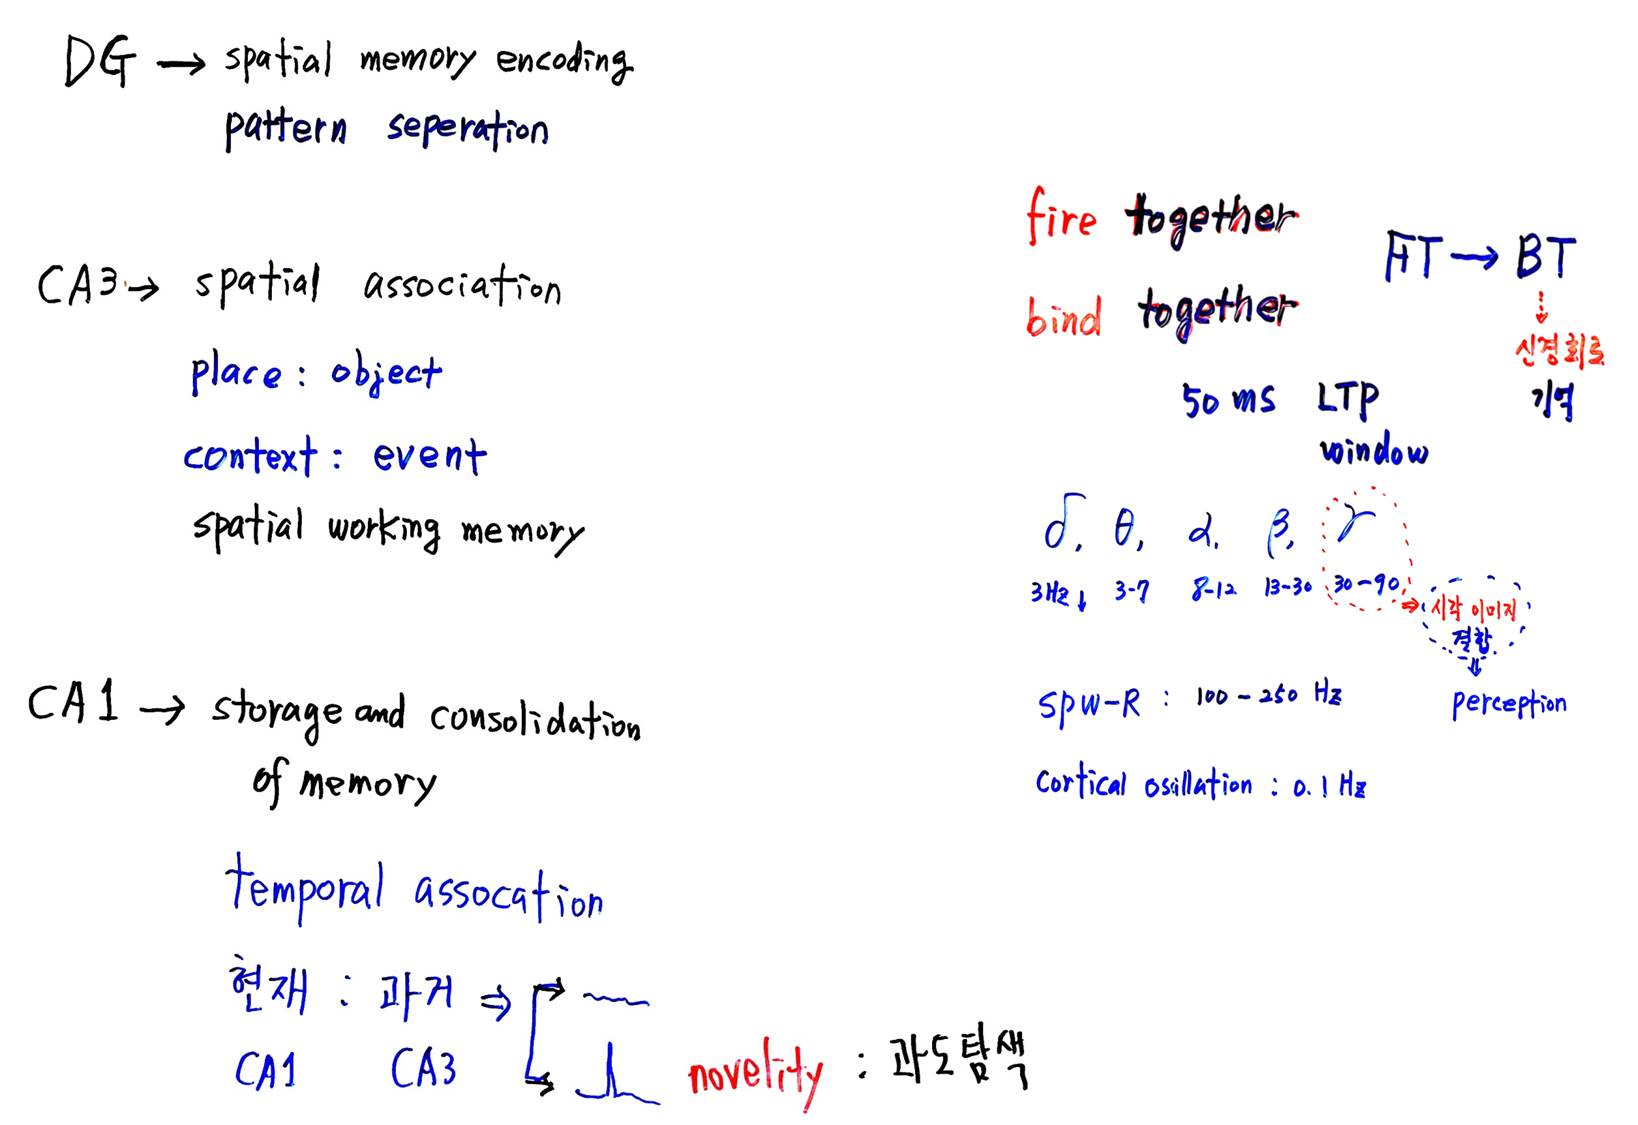 DG → spatial memory encoding
pattern seperation
CA3 → spatial association
place : object
context : event
spatial working memory
CA1 → storage and consolidation
of memory
temporal assocation
현재 : 과거 ⇒
CA1 CA3
novelity : 과도탐색
fire together
bind together
FT → BT
신경회로
기억
50 ms LTP
window
δ, θ, α, β, γ
3Hz ↓ 3-7 8-12 13-30 30-90
⇒ 시각 이미지
결합
perception
SPW-R : 100 - 250 Hz
cortical osillation : 0.1 Hz